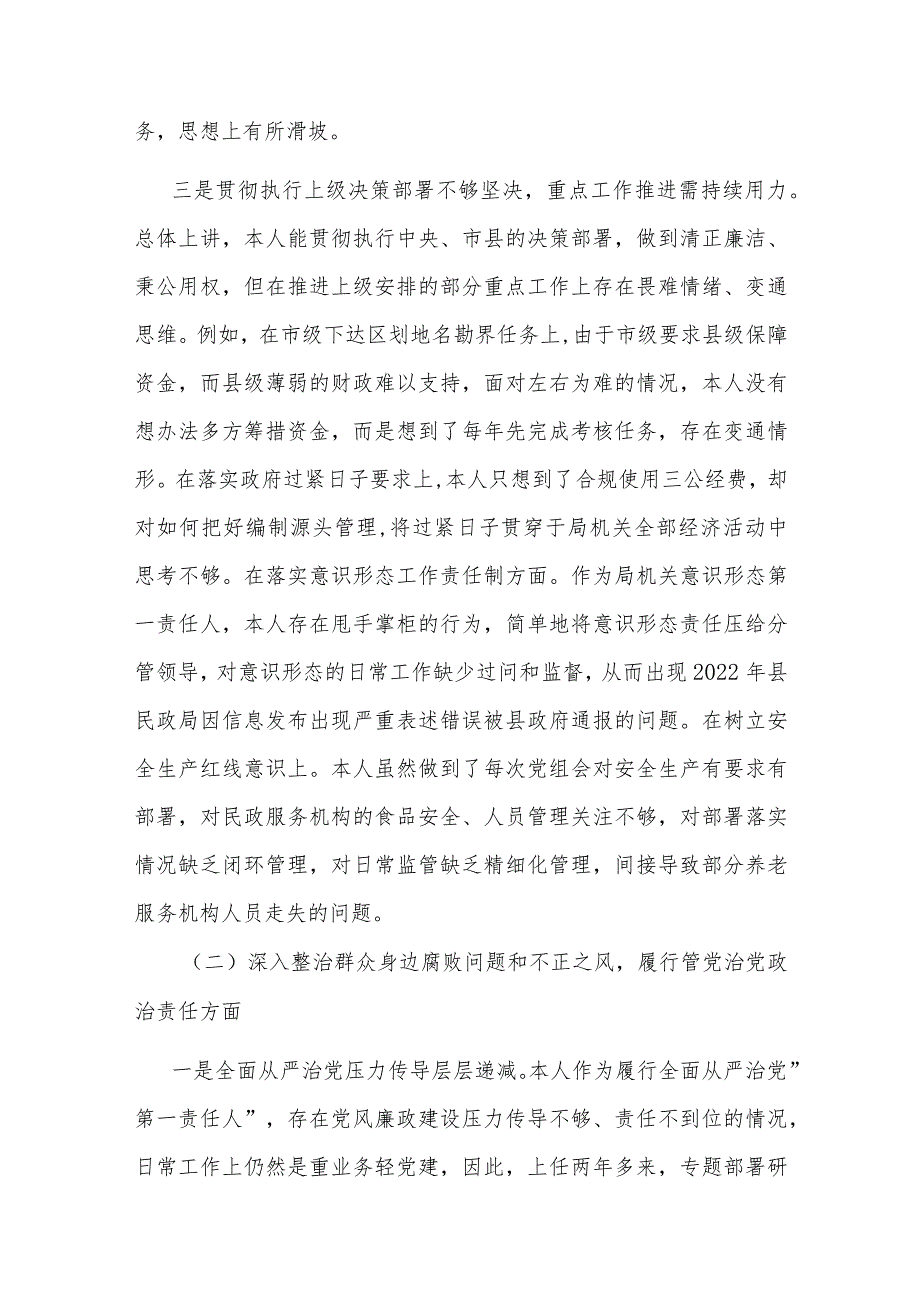 务，思想上有所滑坡。
三是贯彻执行上级决策部署不够坚决，重点工作推进需持续用力。
总体上讲，本人能贯彻执行中央、市县的决策部署，做到清正廉洁、
秉公用权，但在推进上级安排的部分重点工作上存在畏难情绪、变通
思维。例如，在市级下达区划地名勘界任务上,由于市级要求县级保障
资金，而县级薄弱的财政难以支持，面对左右为难的情况，本人没有
想办法多方筹措资金，而是想到了每年先完成考核任务，存在变通情
形。在落实政府过紧日子要求上,本人只想到了合规使用三公经费，却
对如何把好编制源头管理,将过紧日子贯穿于局机关全部经济活动中
思考不够。在落实意识形态工作责任制方面。作为局机关意识形态第
一责任人，本人存在甩手掌柜的行为，简单地将意识形态责任压给分
管领导，对意识形态的日常工作缺少过问和监督，从而出现 2022 年县
民政局因信息发布出现严重表述错误被县政府通报的问题。在树立安
全生产红线意识上。本人虽然做到了每次党组会对安全生产有要求有
部署，对民政服务机构的食品安全、人员管理关注不够，对部署落实
情况缺乏闭环管理，对日常监管缺乏精细化管理，间接导致部分养老
服务机构人员走失的问题。
（二）深入整治群众身边腐败问题和不正之风，履行管党治党政
治责任方面
一是全面从严治党压力传导层层递减。本人作为履行全面从严治党”
第一责任人”，存在党风廉政建设压力传导不够、责任不到位的情况，
日常工作上仍然是重业务轻党建，因此，上任两年多来，专题部署研